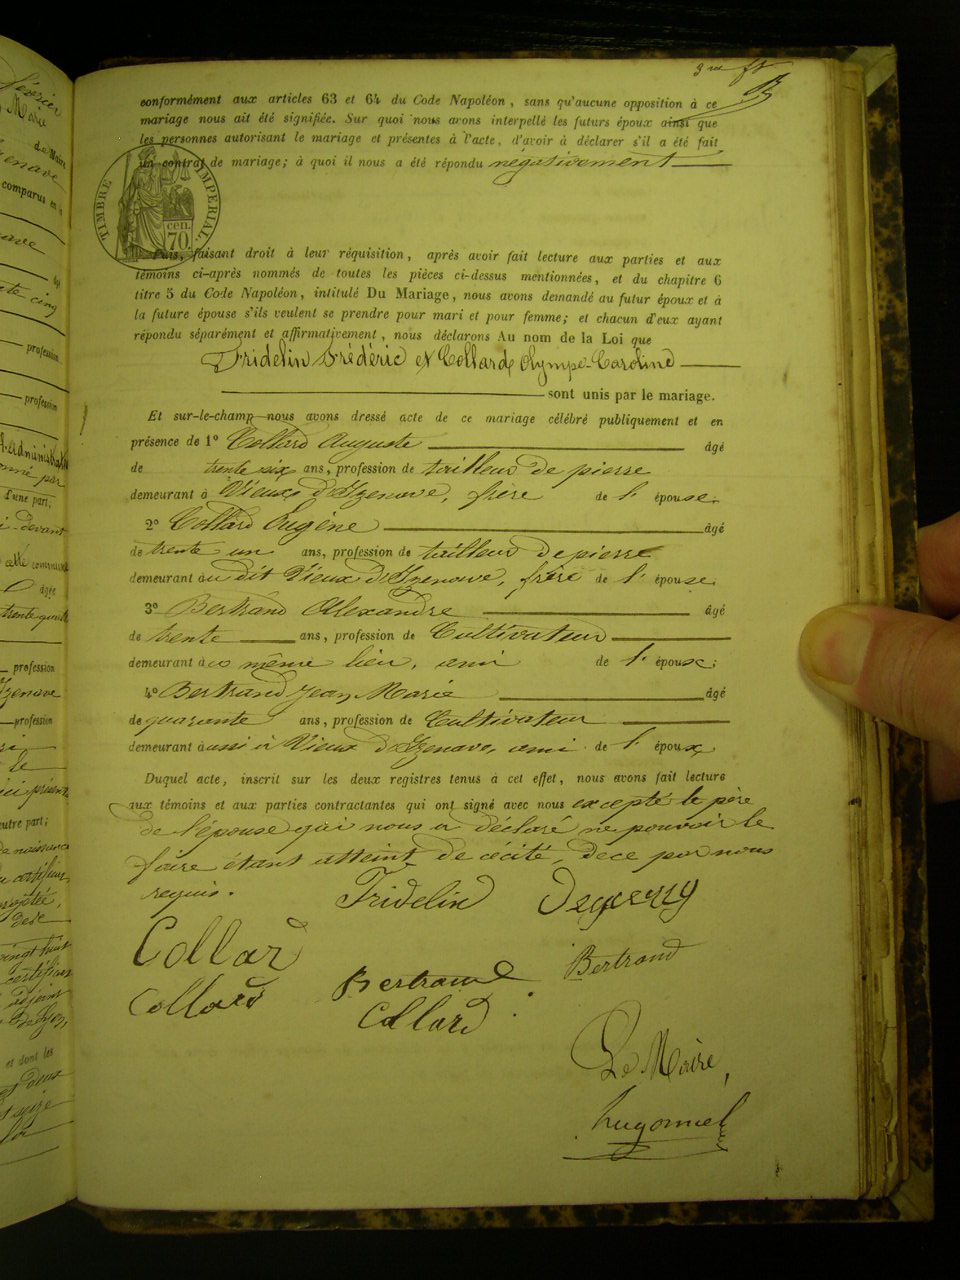 3me ft
conformément aux articles 63 et 64 du Code Napoléon, sans qu'aucune opposition à ce
mariage nous ait été signifiée. Sur quoi nous avons interpellé les futurs époux ainsi que
les personnes autorisant le mariage et présentes à l'acte, d'avoir à déclarer s'il a été fait
un contrat de mariage; à quoi il nous a été répondu négativement
TIMBRE IMPERIAL
cen.
70.
Puis, faisant droit à leur réquisition, après avoir fait lecture aux parties et aux
témoins ci-après nommés de toutes les pièces ci-dessus mentionnées, et du chapitre 6
titre 5 du Code Napoléon, intitulé Du Mariage, nous avons demandé au futur époux et à
la future épouse s'ils veulent se prendre pour mari et pour femme; et chacun d'eux ayant
répondu séparément et affirmativement, nous déclarons Au nom de la Loi que
Fridelin Frédéric et Collard Olympe-Caroline
sont unis par le mariage.
Et sur-le-champ nous avons dressé acte de ce mariage célébré publiquement et en
présence de 1° Collard Auguste âgé
de trente six ans, profession de tailleur de pierre
demeurant à Vieux d'Izenave, frère de l' épouse.
2° Collard Eugène âgé
de trente un ans, profession de tailleur de pierre
demeurant au dit Vieux d'Izenave, frère de l' épouse
3° Bertrand Alexandre âgé
de trente ans, profession de Cultivateur
demeurant à même lieu, ami de l' époux;
4° Bertrand Jean Marie âgé
de quarante ans, profession de Cultivateur
demeurant aussi à Vieux d'Izenave, ami de l' époux
Duquel acte, inscrit sur les deux registres tenus à cet effet, nous avons fait lecture
aux témoins et aux parties contractantes qui ont signé avec nous excepté le père
de l'épouse qui nous a déclaré ne pouvoir le
faire étant atteint de cécité, de ce par nous
requis.
Fridelin
Collard
Bertrand
Collard
Bertrand
Collard
Le Maire,
hugonnet